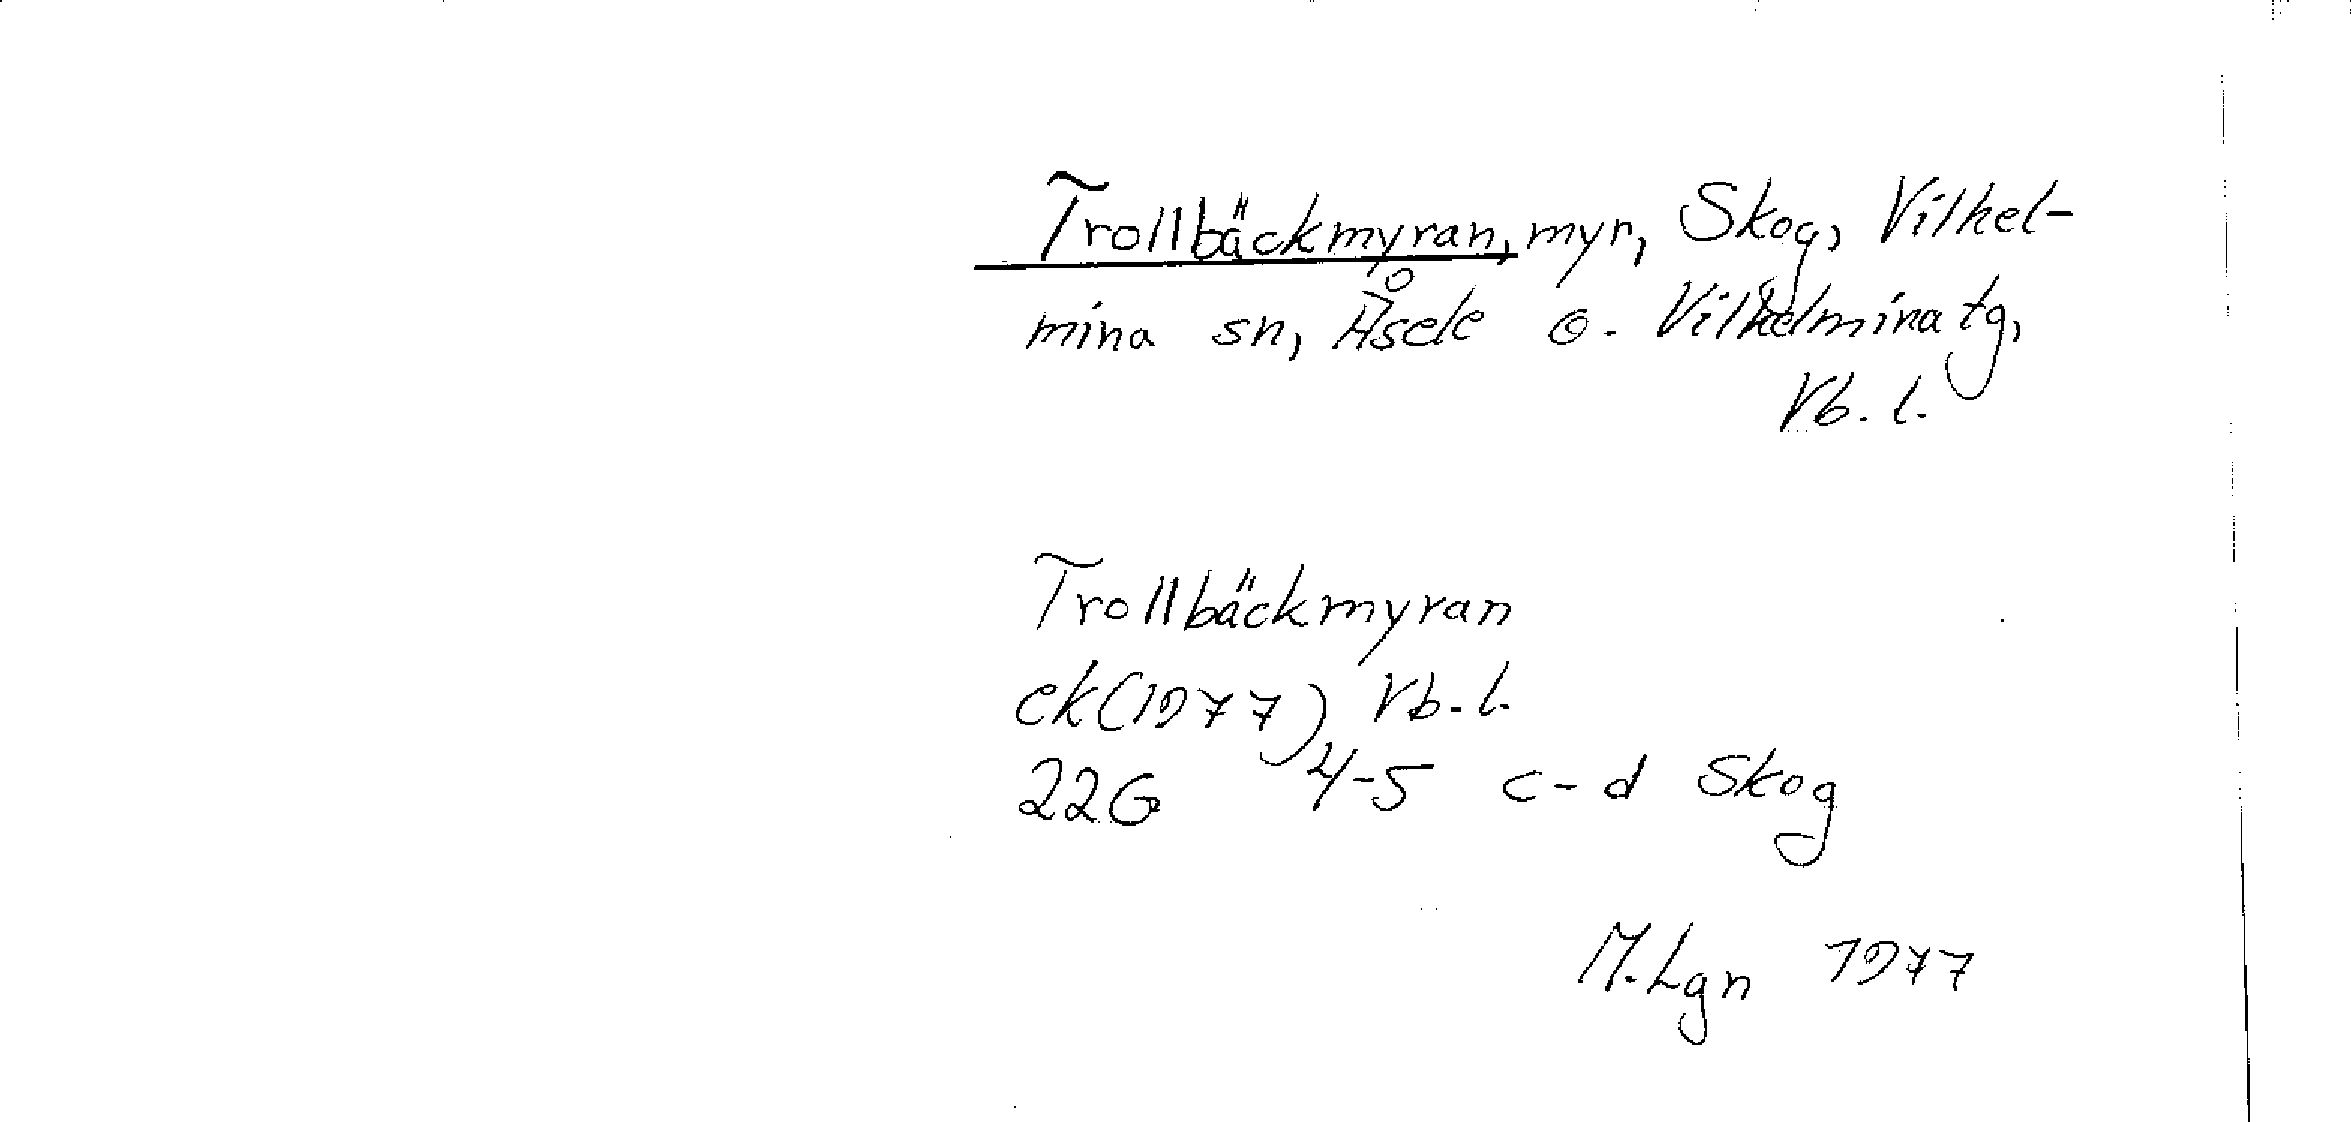 Trollbäckmyran, myr, Skog, Vilhel-
mina sn, Åsele o. Vilhelmina tg,
Vb. l.
Trollbäckmyran
ek(1977) Vb. l.
22G 4-5 c-d Skog
M.Lgn 1977